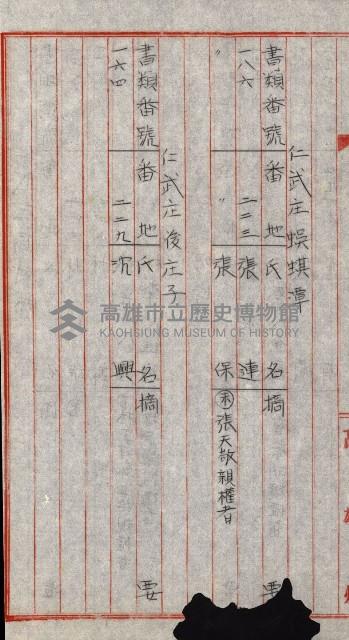 仁武庄蜈蜞潭
書類番號 番地 氏名 摘要
一八六 二二三 張連
〃 〃 張保 張天敬親權者
仁武庄後庄子
書類番號 番地 氏名 摘要
一六四 二二九 沉興
高雄市立歷史博物館
KAOHSIUNG MUSEUM OF HISTORY
高雄州